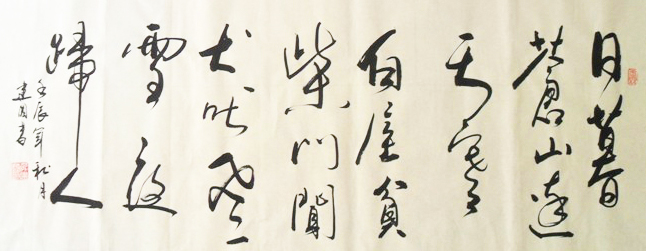 日暮
蒼山遠
天寒
白屋貧
柴門聞
犬吠風
雪夜
歸人
壬辰年秋月
建國書